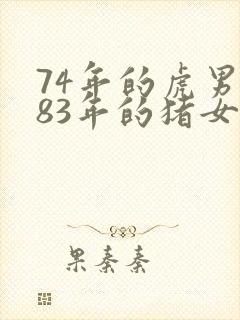 74年的虎男
83年的猪女
果秦秦